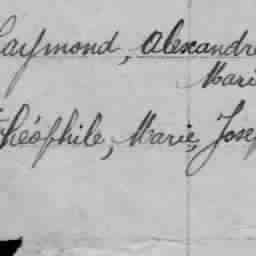 Raymond, Alexandre
Marie
Théophile, Marie, Josep